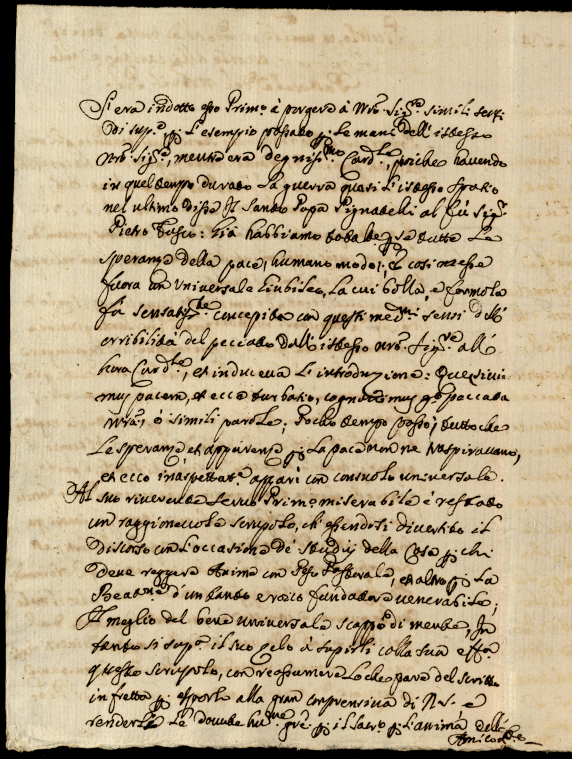 Si era indotto esso Primo à porgere à Nro Sigre simili sensi
di supa p. l'esempio passato p. le mani dell'istesso
Nro Sigre, mentre era degnissmo Cardle, poiche havendo
in quel tempo durato la guerra quasi l'istesso spatio
nel ultimo disse il Santo Papa Pignatelli al fù Sigr
Pietro Fusco: Già habbiamo totalte perse tutte le
speranze della pace, humano modo, e così messe
fuora un Universale Giubileo, la cui bolla, e formola
fù concepita con questi medmi sensi dell'
orribilità del peccato dall'istesso Nro Sigre all'
hora Cardle, et induceva l'introduzione: Quesivi
mus pacem, et ecce turbatio, cognovimus peccata
nra, ò simili parole; Pocho tempo passò, tutto che
le speranze, et apparenze p. la pace non ne traspiravano,
et ecco inaspettate apparì con consuolo universale.
Al suo riverente servo Primo miserabile è restato
un raggionevole scrupolo, ch'essendosi divertito il
discorso con l'occasione de' studij della Cosa p. chi
deve reggere Anime con Peso Pastorale, et altro p. la
Beatne d'un tanto eroico fundatore venerabile;
Il meglio del bene universale scappò di mente, In
tanto si supa il suo zelo à supirli colla sua
questo scrupolo, con reassumere lo che pare del scritto
in fretta p. esporlo alla gran comprensiva di N.S. e
renderle le dovute hume gre p. il sacro p. l'anima dell'
Amico